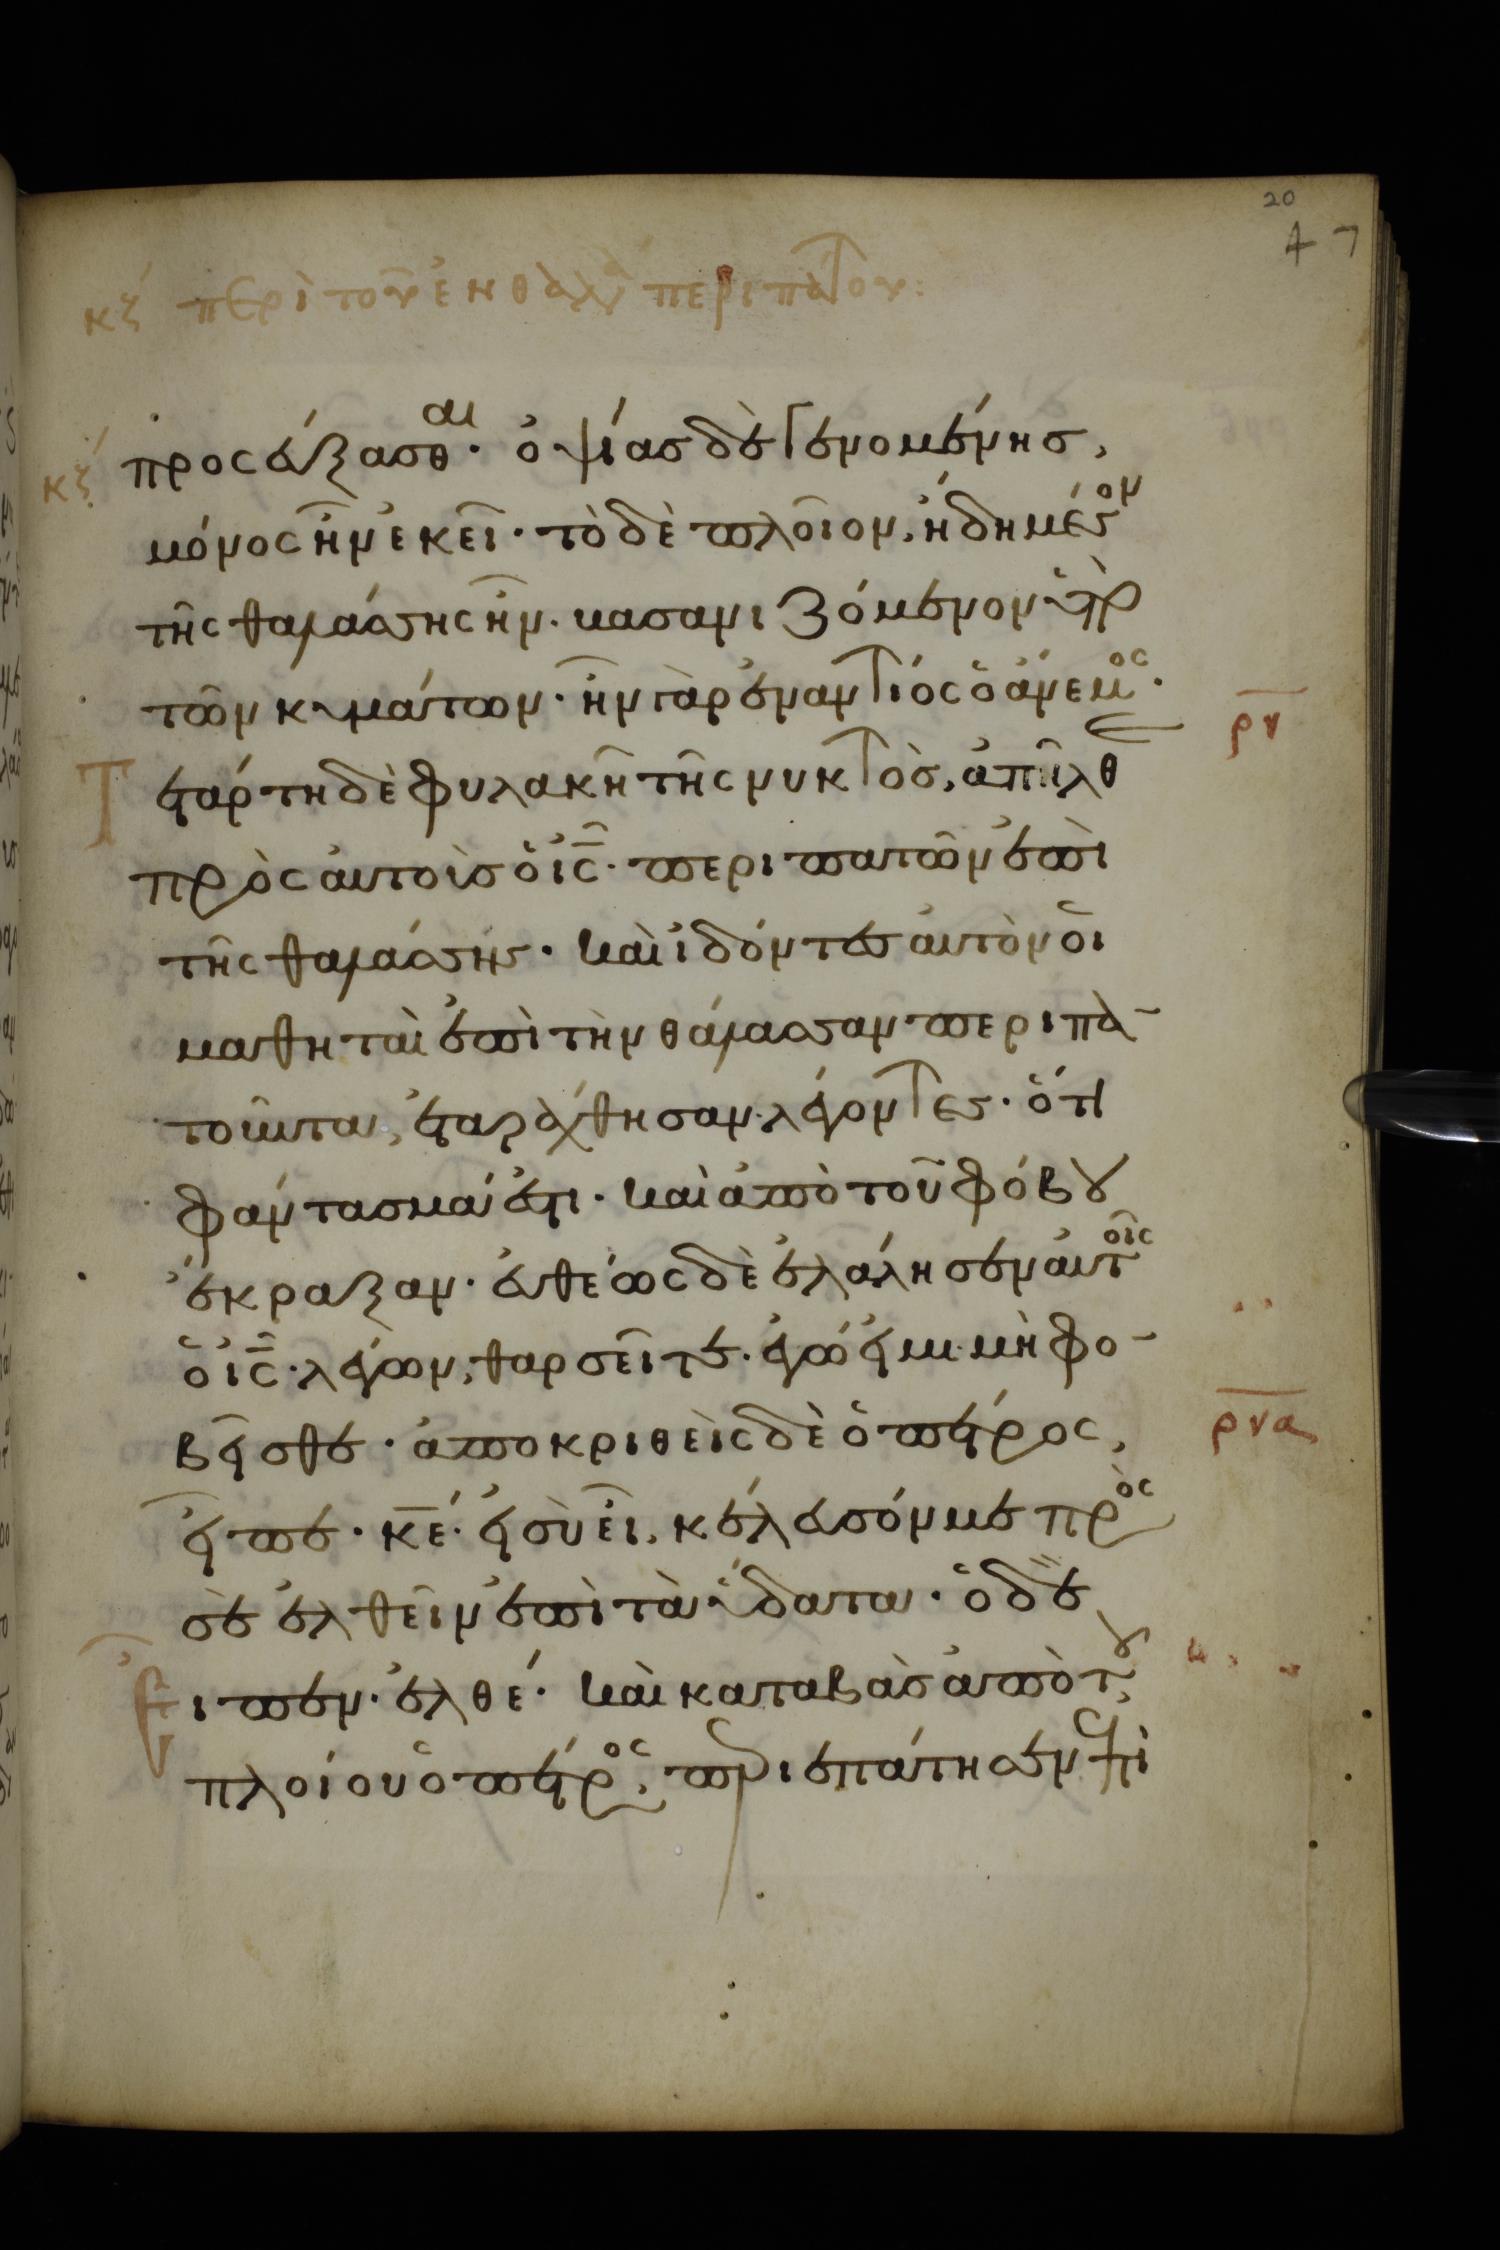 20
47
κζ περὶ τοῦ ἐν θαλ περιπάτου:
κζ προσεύξασθαι· ὀψίας δὲ γενομένης,
μόνος ἦν ἐκεῖ· τὸ δὲ πλοῖον, ἤδη μέσον
τῆς θαλάσσης ἦν· βασανιζόμενον ὑπὸ
τῶν κυμάτων· ἦν γὰρ ἐναντίος ὁ ἄνεμος·
ρν
Τετάρτη δὲ φυλακῆ τῆς νυκτὸς, ἀπῆλθε
πρὸς αὐτοὺς ὁ ις· περιπατῶν ἐπὶ
τῆς θαλάσσης· καὶ ἰδόντες αὐτὸν οἱ
μαθηταὶ ἐπὶ τὴν θάλασσαν περιπα-
τοῦντα, ἐταράχθησαν λέγοντες· ὅτι
φάντασμά ἐστι· καὶ ἀπὸ τοῦ φόβου
ἔκραξαν· εὐθέως δὲ ἐλάλησεν αὐτοῖς
ὁ ις· λέγων, θαρσεῖτε· ἐγώ εἰμι· μὴ φο-
βεῖσθε· ἀποκριθεὶς δὲ ὁ πέτρος,
ρνα
εἶπε· κε· εἰ σὺ εἶ, κέλευσόν με πρὸς
σὲ ἐλθεῖν ἐπὶ τὰ ὕδατα· ὁ δὲ
Εἶπεν· ἐλθέ· καὶ καταβὰς ἀπὸ τοῦ
πλοίου ὁ πέτρος, περιεπάτησεν ἐπὶ